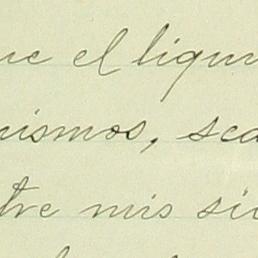 ue el ligur
uismos, sea
tre mis si